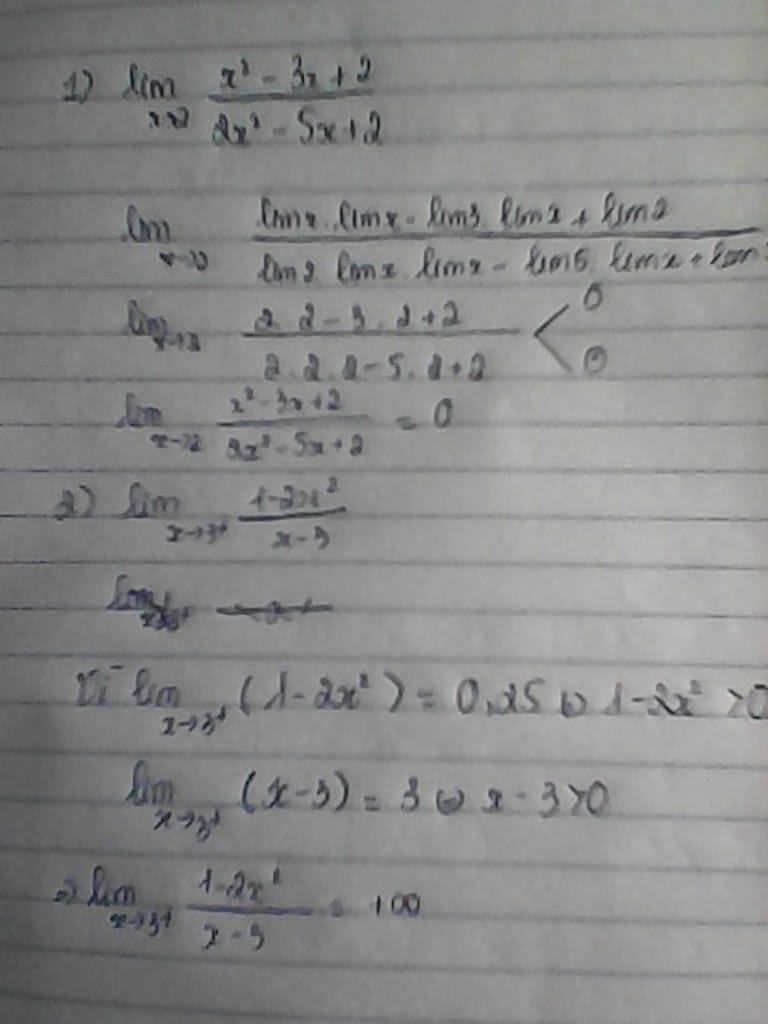 1) lim x→2 x² - 3x + 2 / 2x² - 5x + 2
lim x→2 lim x . lim x - lim 3 . lim x + lim 2 / lim 2 . lim x . lim x - lim 5 . lim x + lim
lim x→2 2.2 - 3.2 + 2 / 2.2.2 - 5.2 + 2 < 0 0
lim x→2 x² - 3x + 2 / 2x² - 5x + 2 = 0
2) lim x→3⁺ 1 - 2x² / x - 3
Vì lim x→3⁺ (1 - 2x²) = 0,25 1 - 2x² > 0
lim x→3⁺ (x - 3) = 3 x - 3 > 0
⇒ lim x→3⁺ 1 - 2x² / x - 3 = +∞